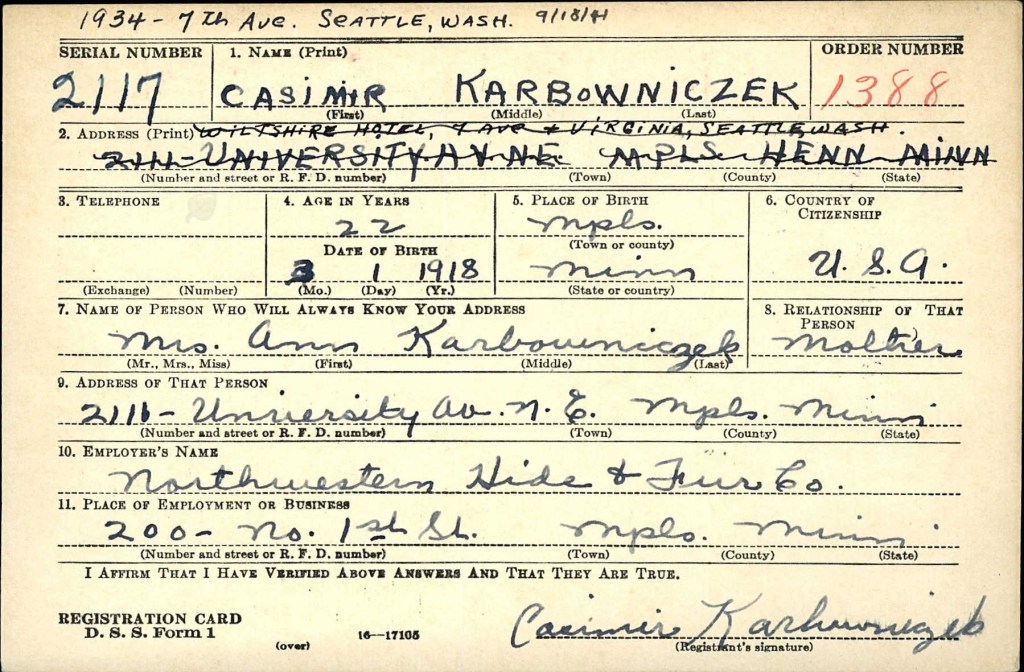 1934 - 7th Ave. SEATTLE, WASH. 9/18/41
SERIAL NUMBER 1. NAME (Print) ORDER NUMBER
2117 CASIMIR KARBOWNICZEK 1388
(First) (Middle) (Last)
2. ADDRESS (Print) WILTSHIRE HOTEL, 7 AVE & VIRGINIA, SEATTLE, WASH.
2111 - UNIVERSITY AV. N.E. MPLS HENN MINN
(Number and street or R. F. D. number) (Town) (County) (State)
3. TELEPHONE 4. AGE IN YEARS 5. PLACE OF BIRTH 6. COUNTRY OF CITIZENSHIP
22 Mpls.
DATE OF BIRTH (Town or county)
3 1 1918 Minn U. S. A.
(Exchange) (Number) (Mo.) (Day) (Yr.) (State or country)
7. NAME OF PERSON WHO WILL ALWAYS KNOW YOUR ADDRESS 8. RELATIONSHIP OF THAT PERSON
Mrs. Ann Karbowniczek Mother
(Mr., Mrs., Miss) (First) (Middle) (Last)
9. ADDRESS OF THAT PERSON
2111 - University Av. N. E. Mpls. Minn
(Number and street or R. F. D. number) (Town) (County) (State)
10. EMPLOYER'S NAME
Northwestern Hide & Fur Co.
11. PLACE OF EMPLOYMENT OR BUSINESS
200 - No. 1st St. Mpls. Minn
(Number and street or R. F. D. number) (Town) (County) (State)
I AFFIRM THAT I HAVE VERIFIED ABOVE ANSWERS AND THAT THEY ARE TRUE.
REGISTRATION CARD
D. S. S. Form 1 16—17105 Casimir Karbowniczek
(over) (Registrant's signature)